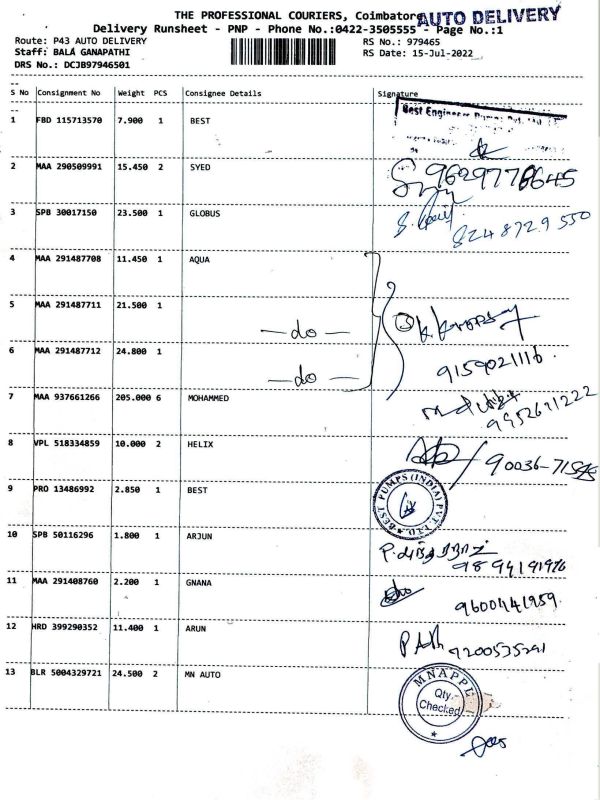 THE PROFESSIONAL COURIERS, Coimbatore
AUTO DELIVERY
Delivery Runsheet - PNP - Phone No.:0422-3505555 - Page No.:1
Route: P43 AUTO DELIVERY RS No.: 979465
Staff: BALA GANAPATHI RS Date: 15-Jul-2022
DRS No.: DCJB97946501
S No Consignment No Weight PCS Consignee Details Signature
1 FBD 115713570 7.900 1 BEST
Best Engineer Pumps Pvt. Ltd.
2 MAA 290509991 15.450 2 SYED
3 SPB 30017150 23.500 1 GLOBUS
824 8729 550
4 MAA 291487708 11.450 1 AQUA
5 MAA 291487711 21.500 1
—do—
6 MAA 291487712 24.800 1
9159021116
—do—
7 MAA 937661266 205.000 6 MOHAMMED
8 VPL 518334859 10.000 2 HELIX
9 PRO 13486992 2.850 1 BEST
BEST PUMPS (INDIA) PVT. LTD.
10 SPB 50116296 1.800 1 ARJUN
11 MAA 291408760 2.200 1 GNANA
9600441959
12 HRD 399290352 11.400 1 ARUN
13 BLR 5004329721 24.500 2 MN AUTO
MNAPPL
Qty.
Checked